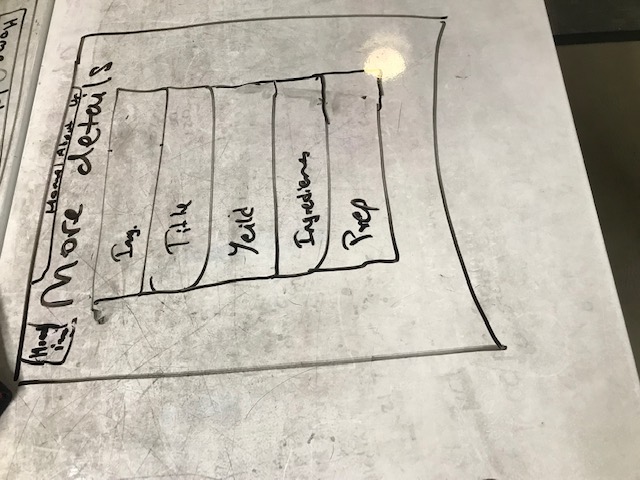 Home
Home About Us
More details
Img.
Title
Yeild
Ingredienes
Prep